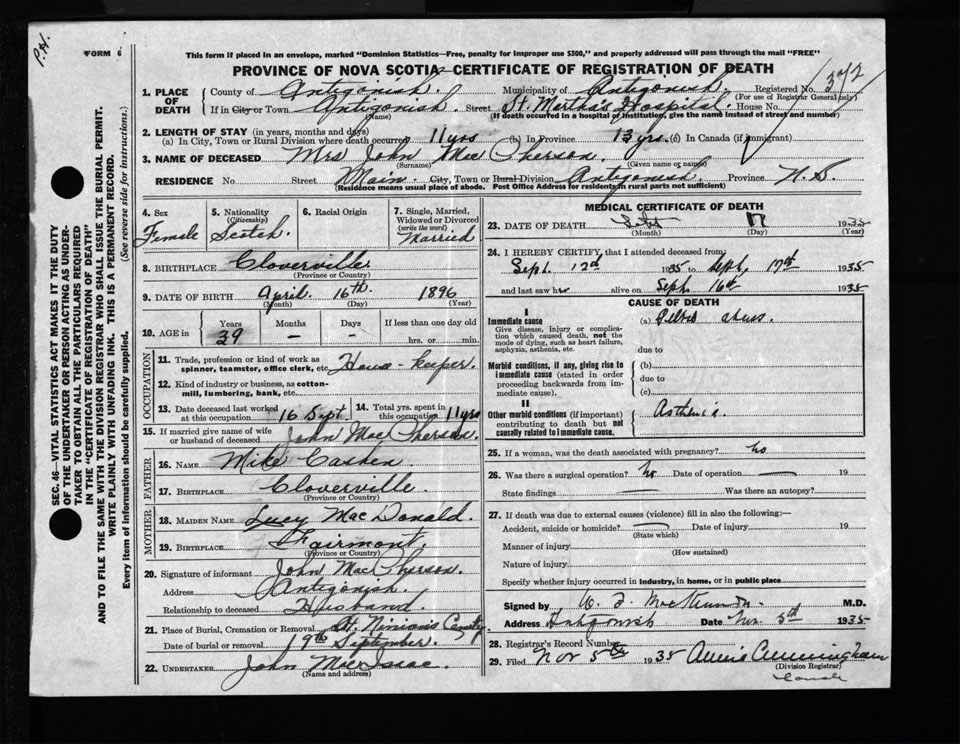 P.H.
FORM 6.
This form if placed in an envelope, marked "Dominion Statistics—Free, penalty for improper use $300," and properly addressed will pass through the mail "FREE"
PROVINCE OF NOVA SCOTIA—CERTIFICATE OF REGISTRATION OF DEATH
SEC. 46—VITAL STATISTICS ACT MAKES IT THE DUTY
OF THE UNDERTAKER OR PERSON ACTING AS UNDER-
TAKER TO OBTAIN ALL THE PARTICULARS REQUIRED
IN THE "CERTIFICATE OF REGISTRATION OF DEATH"
AND TO FILE THE SAME WITH THE DIVISION REGISTRAR WHO SHALL ISSUE THE BURIAL PERMIT.
WRITE PLAINLY WITH UNFADING INK. THIS IS A PERMANENT RECORD.
Every item of information should be carefully supplied. (See reverse side for instructions.)
1. PLACE OF DEATH County of Antigonish. Municipality of Antigonish. Registered No. 372
(For use of Registrar General only)
If in City or Town Antigonish. Street St. Martha's Hospital. House No.
(Name) (If death occurred in a hospital of institution, give the name instead of street and number)
2. LENGTH OF STAY (in years, months and days)
(a) In City, Town or Rural Division where death occurred 11 yrs (b) In Province 13 yrs. (c) In Canada (if immigrant)
3. NAME OF DECEASED Mrs John MacPherson.
(Surname) (Given name or names)
RESIDENCE No Street Main. City, Town or Rural Division Antigonish. Province N.S.
(Residence means usual place of abode. Post Office Address for residents in rural parts not sufficient)
4. Sex Female
5. Nationality (Citizenship) Scotch.
6. Racial Origin
7. Single, Married, Widowed or Divorced (write the word) Married
8. BIRTHPLACE Cloverville.
(Province or Country)
9. DATE OF BIRTH April. 16th. 1896
(Month) (Day) (Year)
10. AGE in Years 39 Months — Days — If less than one day old hrs. or min.
OCCUPATION
11. Trade, profession or kind of work as spinner, teamster, office clerk, etc House-keeper.
12. Kind of industry or business, as cotton-mill, lumbering, bank, etc.
13. Date deceased last worked at this occupation 16 Sept
14. Total yrs. spent in this occupation 11 yrs
15. If married give name of wife or husband of deceased John MacPherson.
FATHER
16. NAME Mike
17. BIRTHPLACE Cloverville.
(Province or Country)
MOTHER
18. MAIDEN NAME Lucy MacDonald.
19. BIRTHPLACE Fairmont.
(Province or Country)
20. Signature of informant John MacPherson.
Address Antigonish.
Relationship to deceased Husband.
21. Place of Burial, Cremation or Removal St. Ninians
Date of burial or removal 19th September.
22. UNDERTAKER John MacIsaac.
(Name and address)
MEDICAL CERTIFICATE OF DEATH
23. DATE OF DEATH Sept 17 1935
(Month) (Day) (Year)
24. I HEREBY CERTIFY, that I attended deceased from:
Sept. 1935 to Sept. 17th 1935
and last saw her alive on Sept. 16th 1935
CAUSE OF DEATH
I
Immediate cause
Give disease, injury or complication which caused death, not the mode of dying, such as heart failure, asphyxia, asthenia, etc.
(a) Pelvic
due to
Morbid conditions, if any, giving rise to immediate cause (stated in order proceeding backwards from immediate cause).
(b)
due to
(c)
II
Other morbid conditions (if important) contributing to death but not causally related to immediate cause.
Asthenia.
25. If a woman, was the death associated with pregnancy? no
26. Was there a surgical operation? no Date of operation — 19
State findings — Was there an autopsy?
27. If death was due to external causes (violence) fill in also the following:—
Accident, suicide or homicide? — Date of injury 19
(State which)
Manner of injury
(How sustained)
Nature of injury
Specify whether injury occurred in industry, in home, or in public place
Signed by M.D.
Address Antigonish Date Nov. 3rd 1935
28. Registrar's Record Number
29. Filed Nov 5th 1935 Cunningham
(Division Registrar)